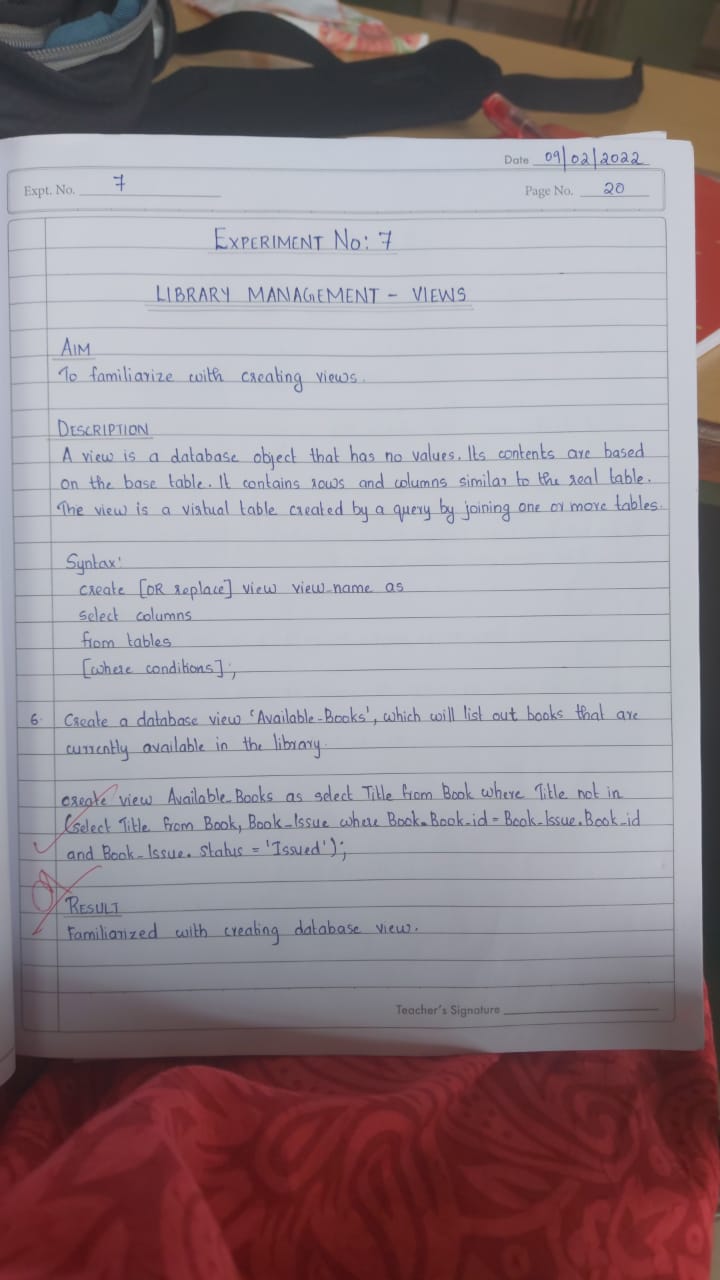 Date 09/02/2022
Expt. No. 7
Page No. 20
EXPERIMENT No: 7
LIBRARY MANAGEMENT - VIEWS
AIM
To familiarize with creating views.
DESCRIPTION
A view is a database object that has no values. Its contents are based
on the base table. It contains rows and columns similar to the real table.
The view is a virtual table created by a query by joining one or more tables.
Syntax:
create [OR replace] view view-name as
select columns
from tables
[where conditions];
6. Create a database view 'Available-Books', which will list out books that are
currently available in the library.
create view Available-Books as select Title from Book where Title not in
(select Title from Book, Book-Issue where Book.Book-id = Book-Issue.Book-id
and Book-Issue.Status = 'Issued');
RESULT
Familiarized with creating database view.
Teacher's Signature